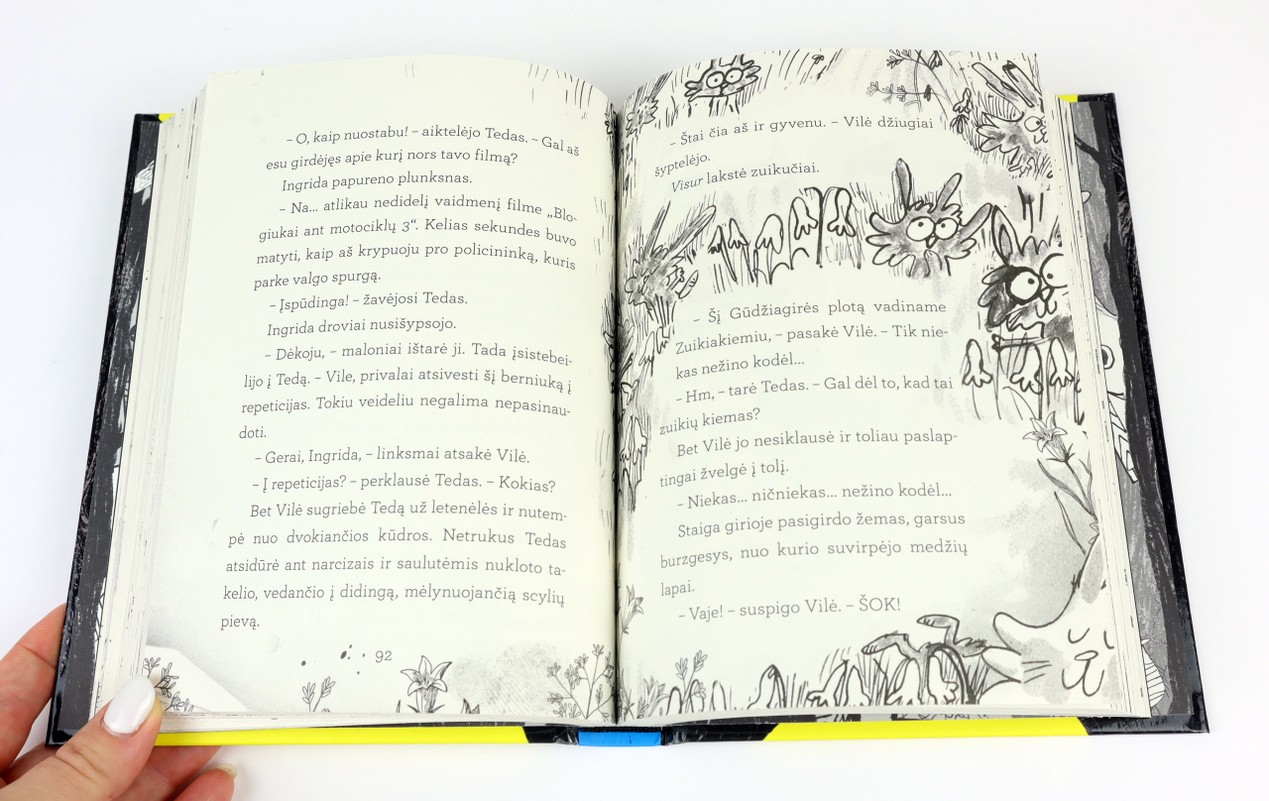 – O, kaip nuostabu! – aiktelėjo Tedas. – Gal aš
esu girdėjęs apie kurį nors tavo filmą?
Ingrida papureno plunksnas.
– Na... atlikau nedidelį vaidmenį filme „Blo-
giukai ant motociklų 3“. Kelias sekundes buvo
matyti, kaip aš krypuoju pro policininką, kuris
parke valgo spurgą.
– Įspūdinga! – žavėjosi Tedas.
Ingrida droviai nusišypsojo.
– Dėkoju, – maloniai ištarė ji. Tada įsistebei-
lijo į Tedą. – Vile, privalai atsivesti šį berniuką į
repeticijas. Tokiu veideliu negalima nepasinau-
doti.
– Gerai, Ingrida, – linksmai atsakė Vilė.
– Į repeticijas? – perklausė Tedas. – Kokias?
Bet Vilė sugriebė Tedą už letenėlės ir nutem-
pė nuo dvokiančios kūdros. Netrukus Tedas
atsidūrė ant narcizais ir saulutėmis nukloto ta-
kelio, vedančio į didingą, mėlynuojančią scylių
pievą.
92
– Štai čia aš ir gyvenu. – Vilė džiugiai
šyptelėjo.
Visur lakstė zuikučiai.
– Šį Gūdžiagirės plotą vadiname
Zuikiakiemiu, – pasakė Vilė. – Tik nie-
kas nežino kodėl...
– Hm, – tarė Tedas. – Gal dėl to, kad tai
zuikių kiemas?
Bet Vilė jo nesiklausė ir toliau paslap-
tingai žvelgė į tolį.
– Niekas... ničniekas... nežino kodėl...
Staiga girioje pasigirdo žemas, garsus
burzgesys, nuo kurio suvirpėjo medžių
lapai.
– Vaje! – suspigo Vilė. – ŠOK!